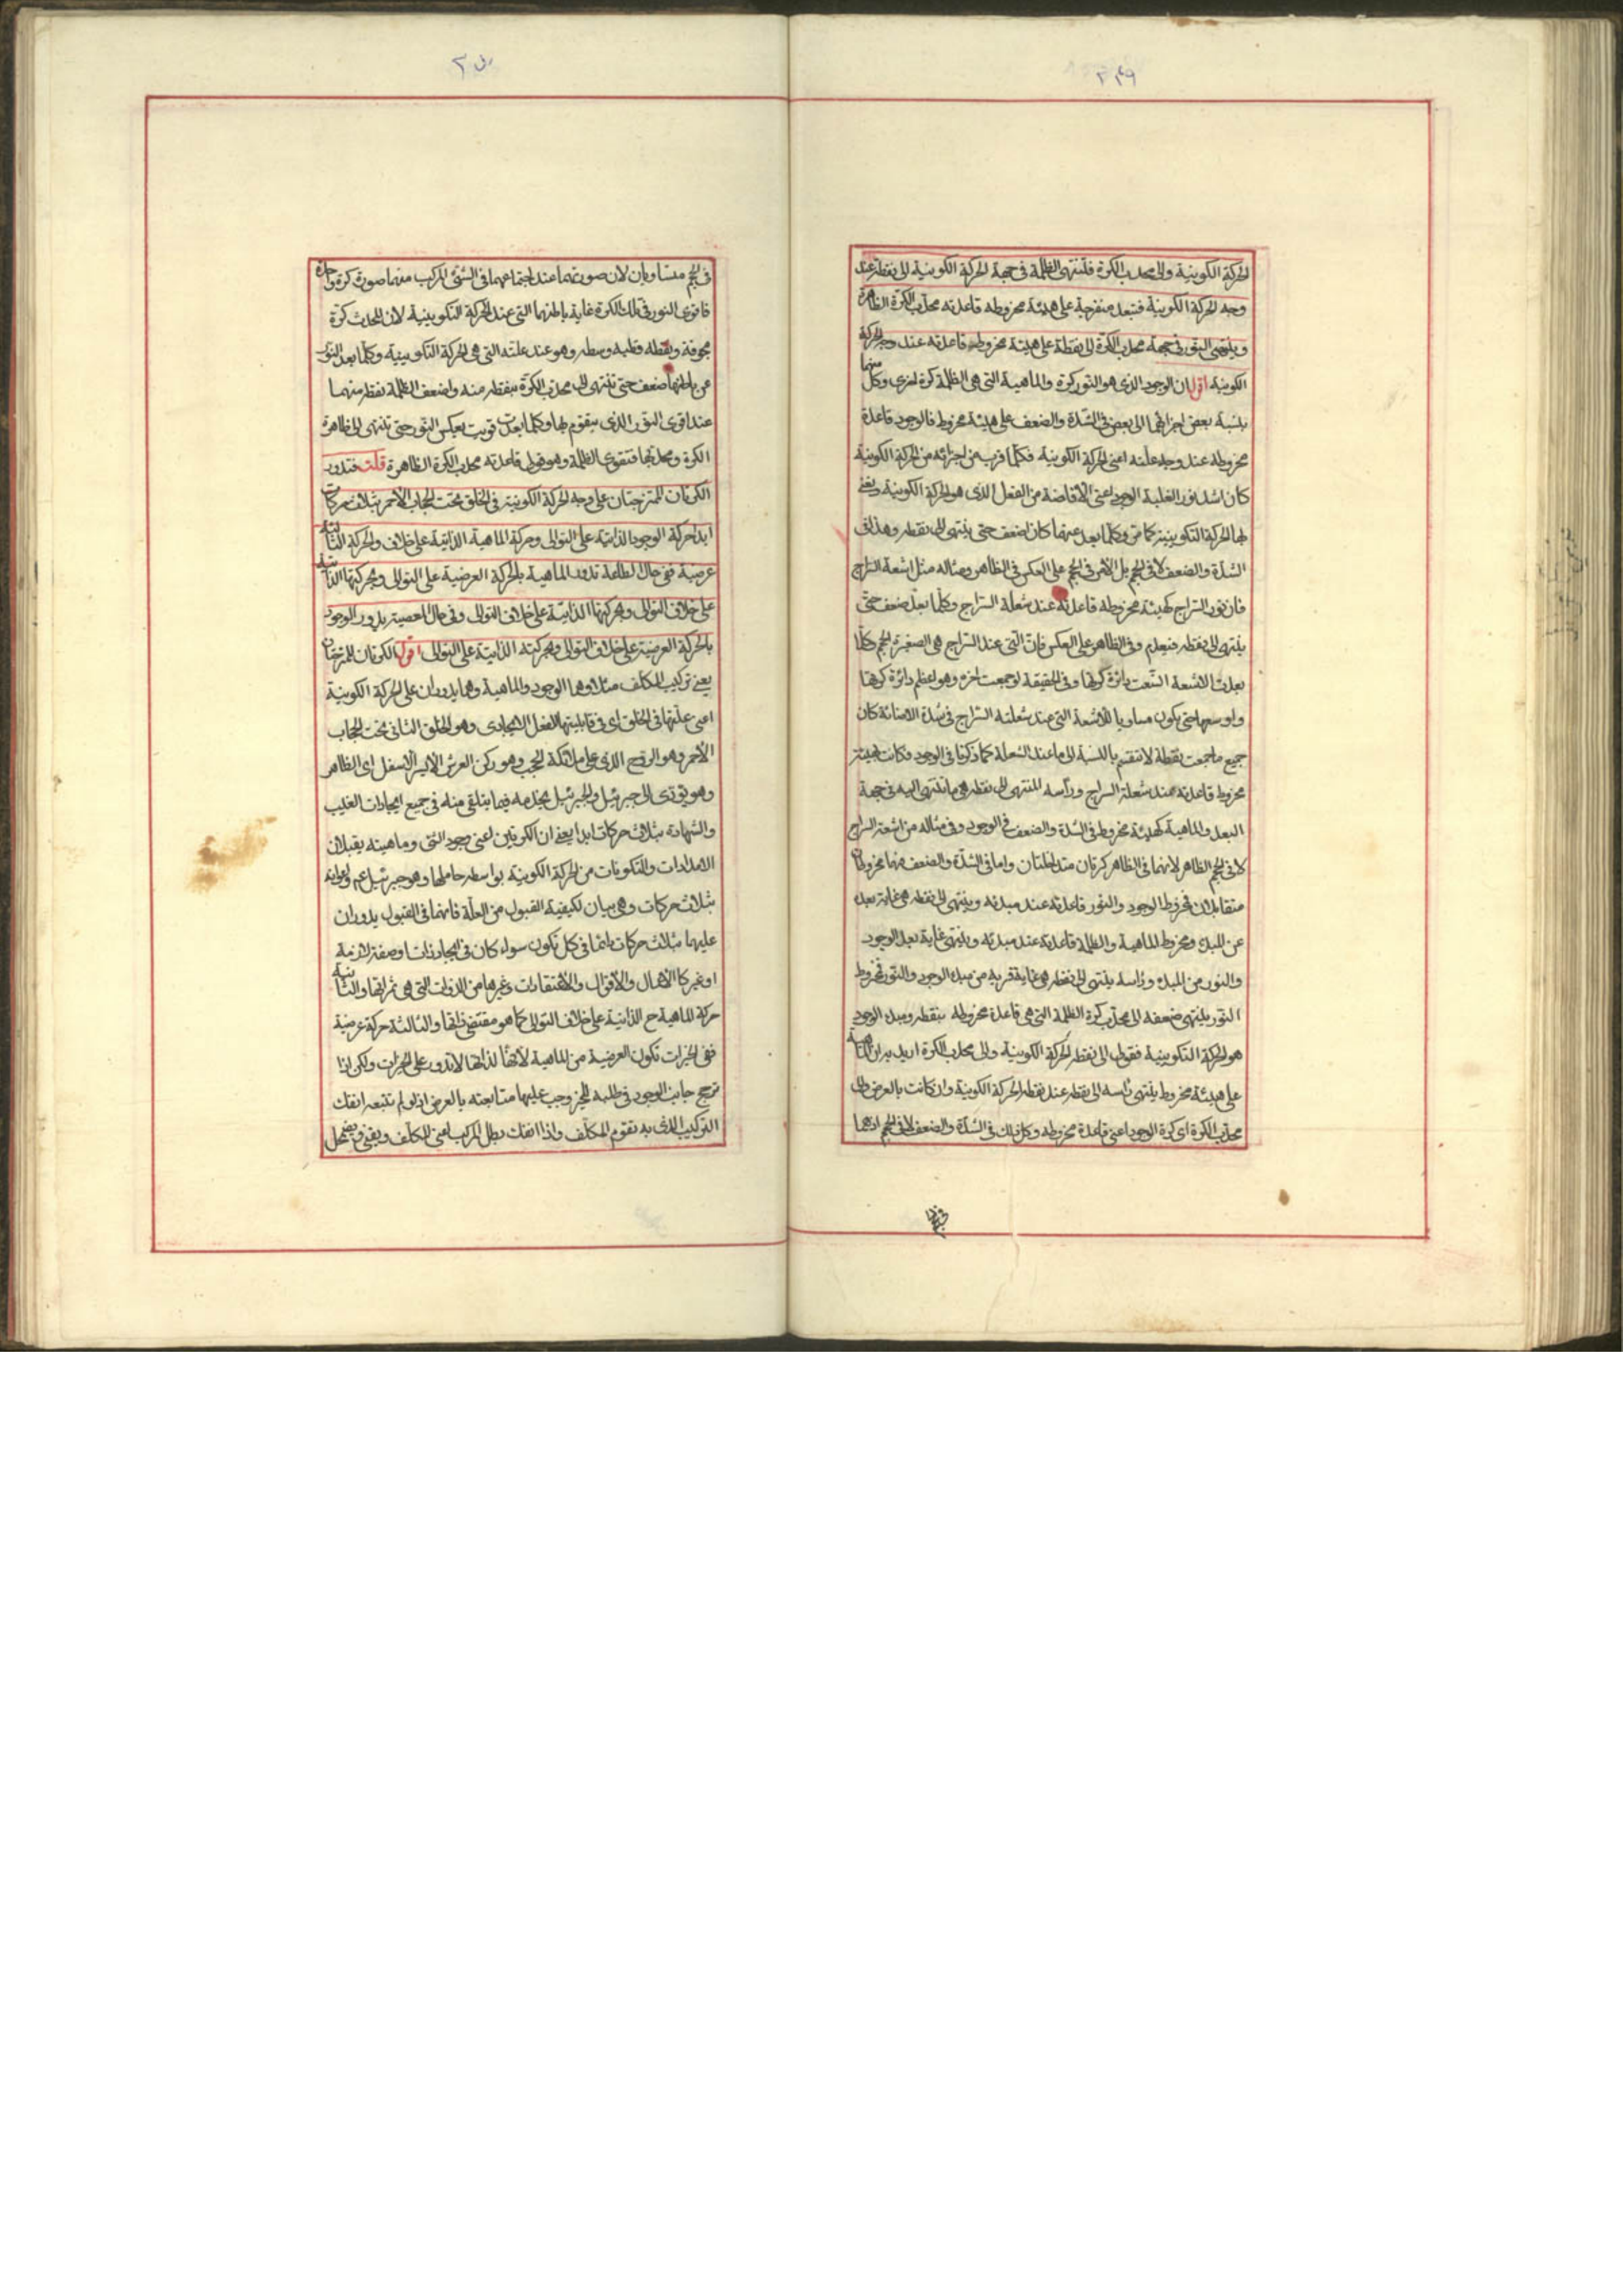 ٢٤٩
الحركة الكونية والى محدب الكرة فتنتهى الظلمة فى جهة الحركة الكونية الى نقطة عند
وجه الحركة الكونية فتبعد منفرجة على هيئة مخروطه قاعدته محدب الكرة الظاهرة
وينتهى النور فى جهة محدب الكرة الى نقطة على هيئة مخروطه قاعدته عند وجه الحركة
الكونية اقول ان الوجود الذى هو النور كرة والماهية التى هى الظلمة كرة اخرى وكل منهما
بنسبة بعض اجزائهما الى بعض فى الشدة والضعف على هيئة مخروط فالوجود قاعدة
مخروطه عند وجه علته اعنى الحركة الكونية فكلما قرب من اجزائه من الحركة الكونية
كان اشد نورا لغلبة الوجود اعنى الافاضة من الفعل الذى هو الحركة الكونية ونعنى
بها الحركة التكوينية كما مر وكلما بعد عنها كان اضعف حتى ينتهى الى نقطه وهذا فى
الشدة والضعف لا فى الحجم بل الامر فى الحجم على العكس فى الظاهر ومثاله مثل اشعة السراج
فان نور السراج كهيئة مخروطه قاعدته عند شعلة السراج وكلما بعد ضعف حتى
ينتهى الى نقطه فيعدم وفى الظاهر على العكس فان التى عند السراج هى الصغيرة الحجم كلما
بعدت الاشعة اتسعت دائرة كرتها وفى الحقيقة لو جمعت اخره وهو اعظم دائرة كرتها
واوسعها حتى يكون مساويا للاشعة التى عند شعلة السراج فى شدة الاضائة كان
جميع ما جمعت نقطة لا تنقسم بالنسبة الى ما عند الشعلة كما ذكرنا فى الوجود فكانت كهيئة
مخروط قاعدته عند شعلة السراج ورأسه المنتهى الى نقطه هى ما تنتهى اليه فى جهة
البعد والماهية كهيئة مخروط فى الشدة والضعف فى الوجود وفى مثاله من اشعة السراج
لا فى الحجم الظاهر لانهما فى الظاهر كرتان متداخلتان واما فى الشدة والضعف فهما مخروطان
متقابلان فمخروط الوجود والنور قاعدته عند مبدئه وينتهى الى نقطه هى غاية بعده
عن المبدء ومخروط الماهية والظلمة قاعدته عند مبدئه وينتهى غاية بعد الوجود
والنور من المبدء ورأسه ينتهى الى نقطه هى غاية قربه من مبدء الوجود والنور فمخروط
النور ينتهى ضعفه الى محدب كرة الظلمة التى هى قاعدة مخروطه بنقطه ومبدء الوجود
هو الحركة التكوينية فقولى الى نقطه الحركة الكونية والى محدب الكرة اريد به ان الماهية
على هيئة مخروط ينتهى رأسه الى نقطه عند نقطه الحركة الكونية وان كانت بالعرض والى
محدب الكرة اى كرة الوجود اعنى قاعدة مخروطه وكل ذلك فى الشدة والضعف لا فى الحجم اذ هما
فى الحجم
٢٥٠
فى الحجم متساويان لان صورتهما عند اجتماعهما فى الشئ المركب منهما صورة كرة واحدة
فاقوى النور فى تلك الكرة غاية باطنها التى عند الحركة التكوينية لان الحادث كرة
مجوفة ونقطه قطبه وسطه وهو عند علته التى هى الحركة التكوينية وكلما بعد النور
عن باطنها ضعف حتى ينتهى الى محدب الكرة بنقطه منه واضعف الظلمة نقطه منهما
عند اقوى النور الذى يتقوم بها وكلما بعدت قويت بعكس النور حتى تنتهى الى ظاهر
الكرة ومحدبها فتقوى الظلمة وهو قولى قاعدته محدب الكرة الظاهرة قلت فتدور
الكرتان الممتزجتان على وجه الحركة الكونية فى الخلق تحت الحجاب الاحمر بثلاث حركات
ابدا حركة الوجود الذاتية على التوالى وحركة الماهية الذاتية على خلاف والحركة الثالثة
عرضية ففى حال الطاعة تدور الماهية بالحركة العرضية على التوالى وبحركتها الذاتية
على خلاف التوالى وبحركتها الذاتية على خلاف التوالى وفى حال المعصية يدور الوجود
بالحركة العرضية على خلاف التوالى وبحركته الذاتية على التوالى اقول الكرتان الممتزجتان
يعنى تركيب المكلف مثلا وهما الوجود والماهية وهما يدوران على الحركة الكونية
اعنى علتها فى الخلق اى فى قابليتها للفعل الايجادى وهو الخلق الثانى تحت الحجاب
الاحمر وهو الروح الذى على ملائكة الحجب وهو ركن العرش الايسر الاسفل اى الظاهر
وهو يؤدى الى جبرئيل والجبرئيل يخدمه فيما يتلقى منه فى جميع ايجادات الغيب
والشهادة بثلاث حركات ابدا يعنى ان الكرتين اعنى وجود الشئ وماهيته يقبلان
الامدادات والتكوينات من الحركة الكونية بواسطه حاملها وهو جبرئيل عم واعوانه
بثلاث حركات وهى بيان لكيفية القبول من العلة فانهما فى القبول يدوران
عليهما بثلاث حركات دائما فى كل تكون سواء كان فى ايجاد ذات او صفة لازمة
او غير كالاعمال والاقوال والاعتقادات وغيرها من الذوات التى هى ثمراتها والثانية
حركة الماهية ح الذاتية على خلاف التوالى كما هو مقتضى ذاتها والثالثة حركة عرضية
ففى الخيرات تكون العرضية من الماهية لانها لذاتها لا تدور على الخيرات ولكن اذا
ترجح جانب الوجود فى طلبه للخير وجب عليها متابعته بالعرض اذ لو لم تتبعه انفك
التركيب الذى به تقوم المكلف واذا انفك بطل المركب اعنى المكلف ويفنى ويضمحل